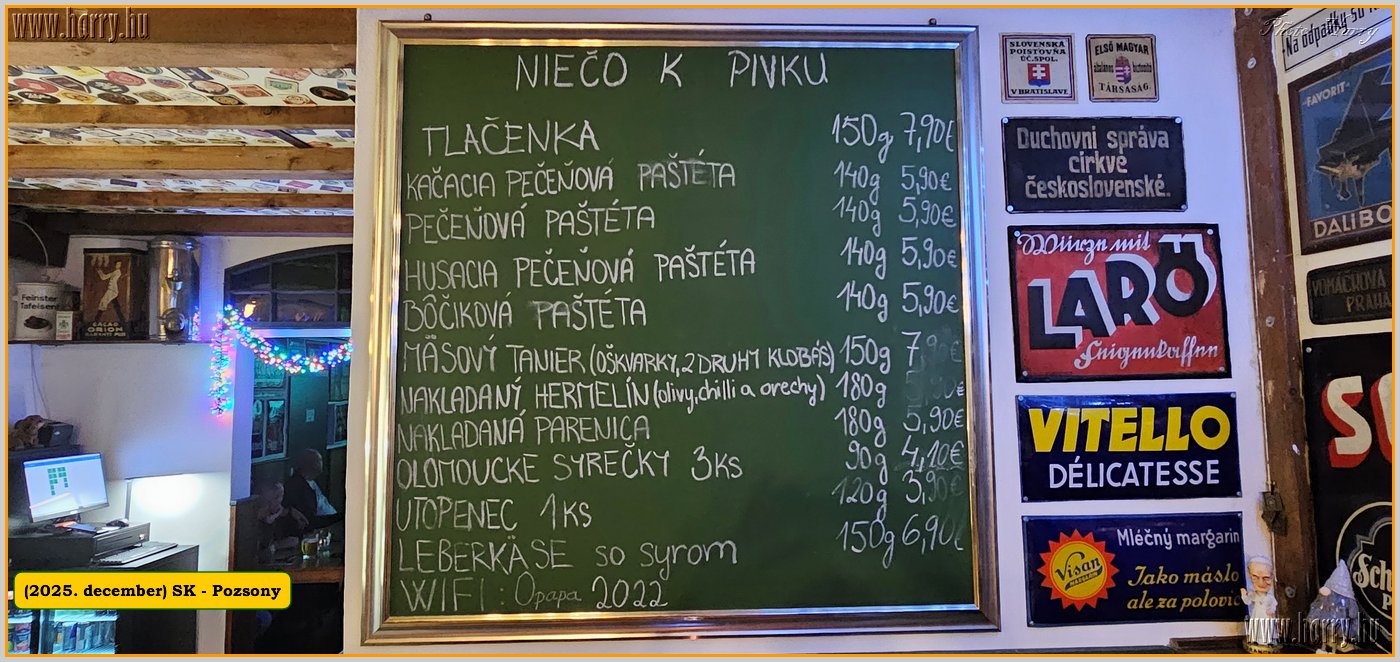 www.horry.hu
NIEČO K PIVKU
TLAČENKA 150g 7,90€
KAČACIA PEČEŇOVÁ PAŠTÉTA 140g 5,90€
PEČEŇOVÁ PAŠTÉTA 140g 5,90€
HUSACIA PEČEŇOVÁ PAŠTÉTA 140g 5,90€
BÔČIKOVÁ PAŠTÉTA 140g 5,90€
MÄSOVÝ TANIER (OŠKVARKY, 2 DRUHY KLOBÁS) 150g 7
NAKLADANÝ HERMELÍN (olivy, chilli a orechy) 180g
NAKLADANÁ PARENICA 180g 5,90€
OLOMOUCKÉ SYREČKY 3KS 90g 4,10€
UTOPENEC 1KS 120g 3,90€
LEBERKÄSE so syrom 150g 6,90€
WIFI: Opapa 2022
SLOVENSKÁ
POISTOVŇA
ÚČ.SPOL.
V BRATISLAVE
ELSŐ MAGYAR
általános biztosító
TÁRSASÁG.
Duchovní správa
církve
československé.
Würze mit
LARÖ
Feigenkaffee
VITELLO
DÉLICATESSE
Visan
MARGARIN
Mléčný margarin
Jako máslo
ale za polovic
Photo: Horry
Na odpadky
FAVORIT
DALIBO
PRAHA
Feinster
Tafelsenf
CACAO
ORION
(2025. december) SK - Pozsony
www.horry.hu